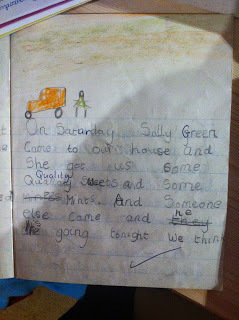 On Saturday Sally Green
Came to our house and
She got us some
Quality
Quality Sweets and Some
Mints. And Someone
he
else came and they
is going tonight We think